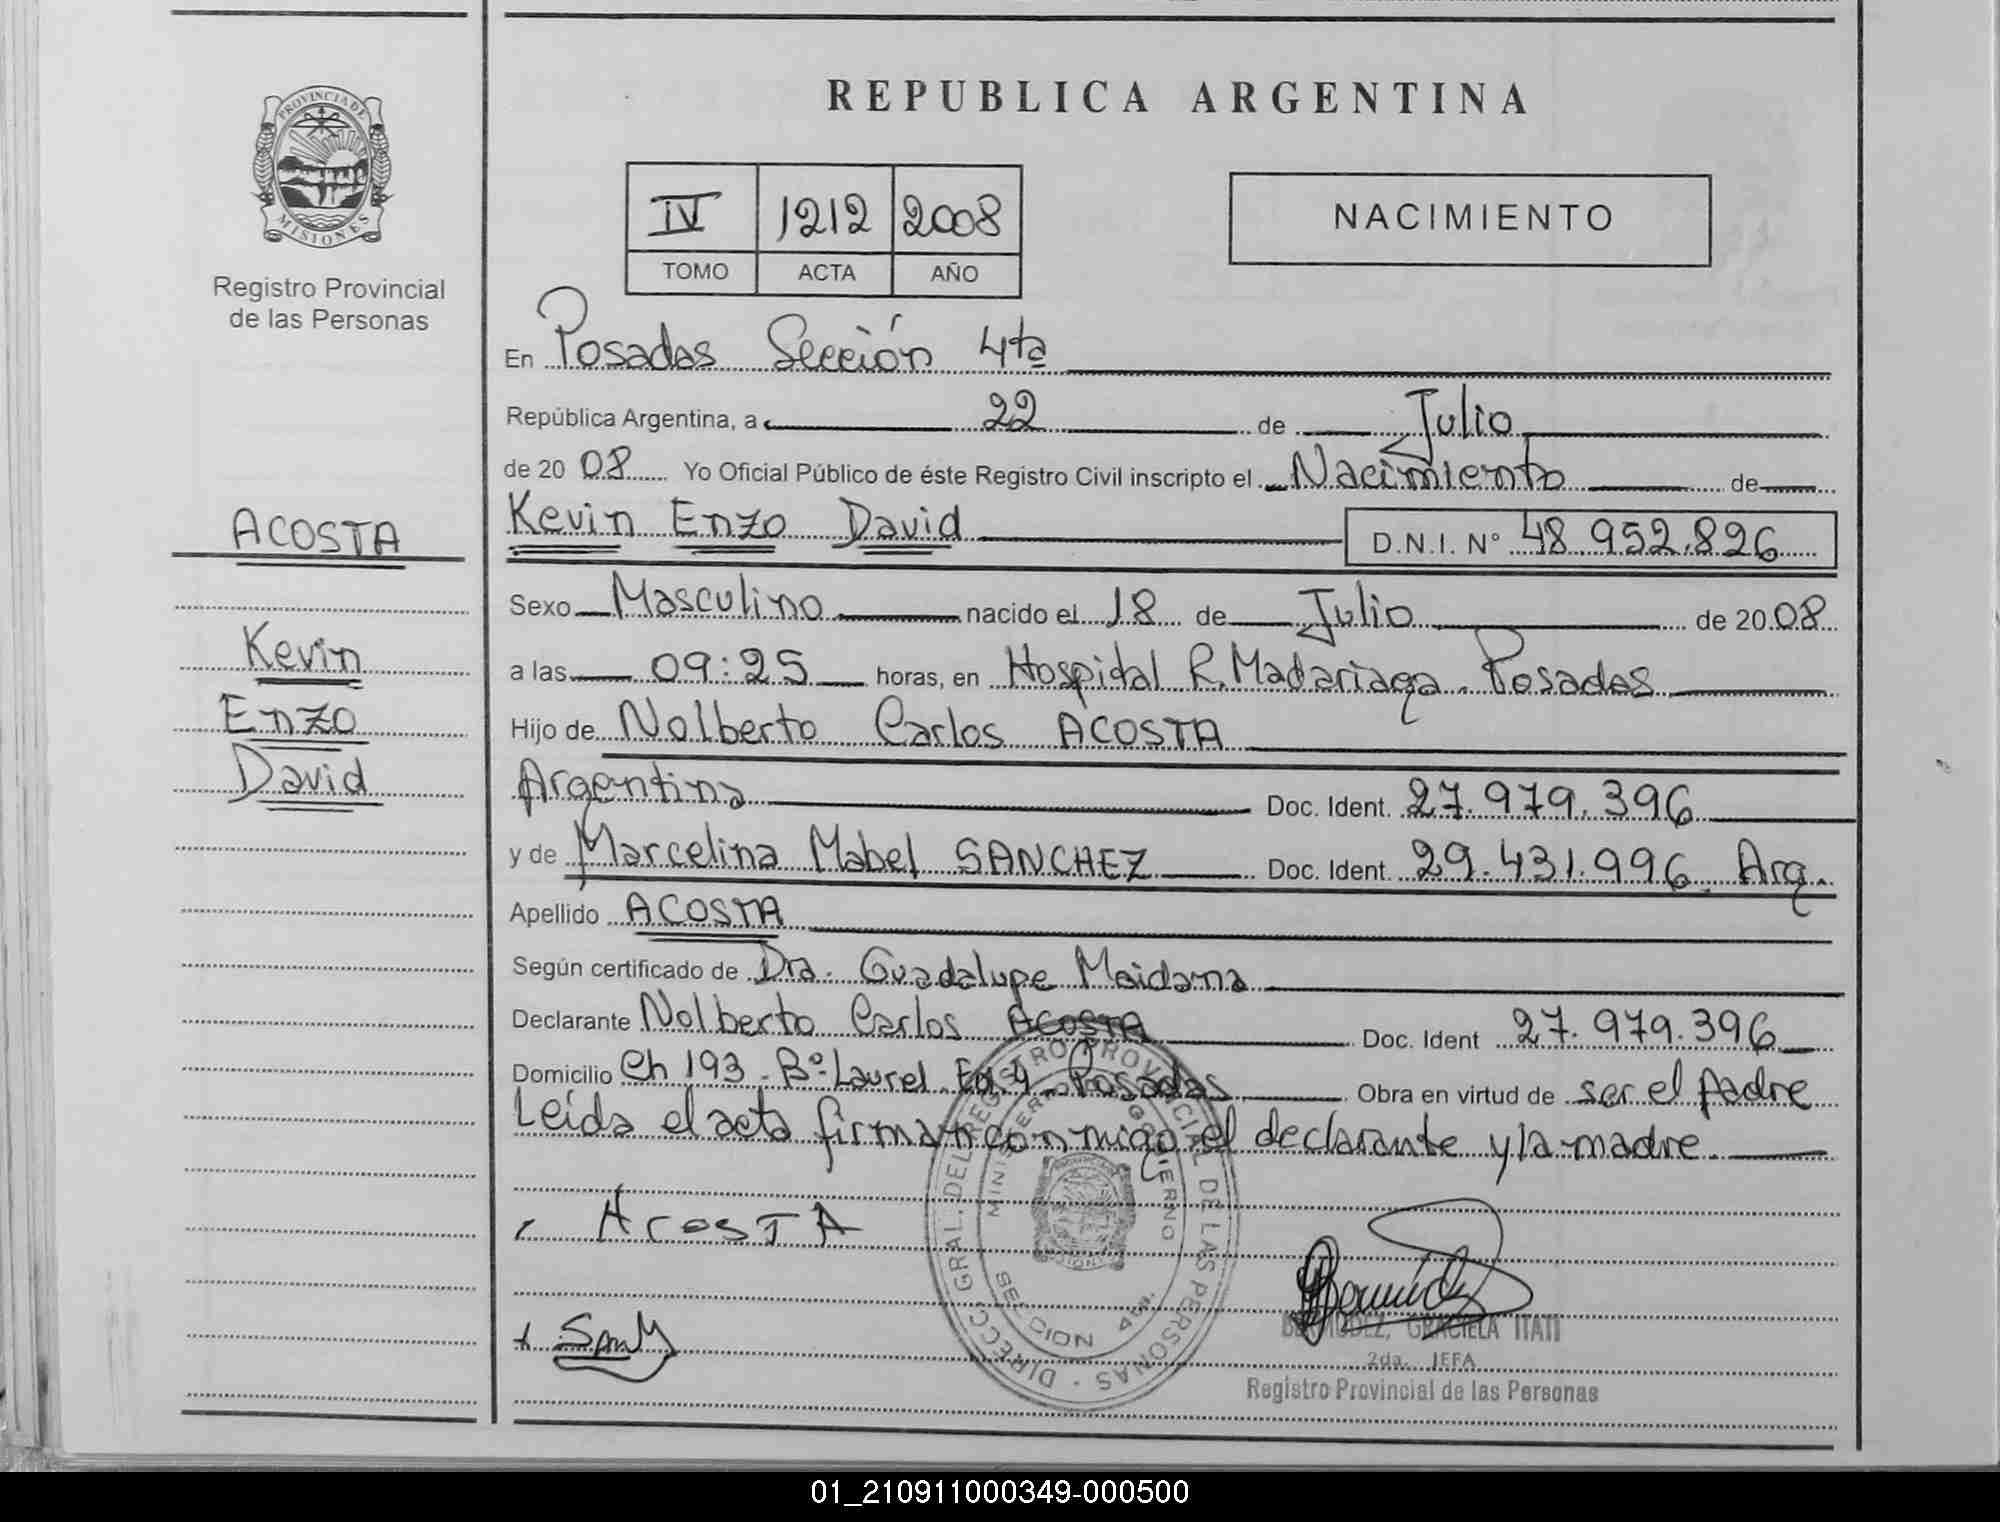 PROVINCIA DE
MISIONES
Registro Provincial
de las Personas
ACOSTA
Kevin
Enzo
David
REPUBLICA ARGENTINA
IV 1212 2008
TOMO ACTA AÑO
NACIMIENTO
En Posadas Sección 4ta
República Argentina, a 22 de Julio
de 2008 Yo Oficial Público de éste Registro Civil inscripto el Nacimiento de
Kevin Enzo David D.N.I. N° 48.952.826
Sexo Masculino nacido el 18 de Julio de 2008
a las 09:25 horas, en Hospital R. Madariaga. Posadas
Hijo de Nolberto Carlos ACOSTA
Argentina Doc. Ident. 27.979.396
y de Marcelina Mabel SANCHEZ Doc. Ident. 29.431.996 Arg.
Apellido ACOSTA
Según certificado de Dra. Guadalupe Maidana
Declarante Nolberto Carlos ACOSTA Doc. Ident 27.979.396
Domicilio Ch 193. B° Laurel. Posadas Obra en virtud de ser el padre
Leída el acta firman conmigo el declarante y la madre.
DIRECC. GRAL. DEL REGISTRO PROVINCIAL DE LAS PERSONAS
MINISTERIO GOBIERNO
SECCION 4ta.
ACOSTA
BERMUDEZ, GRACIELA ITATI
2da. JEFA
Registro Provincial de las Personas
01_210911000349-000500